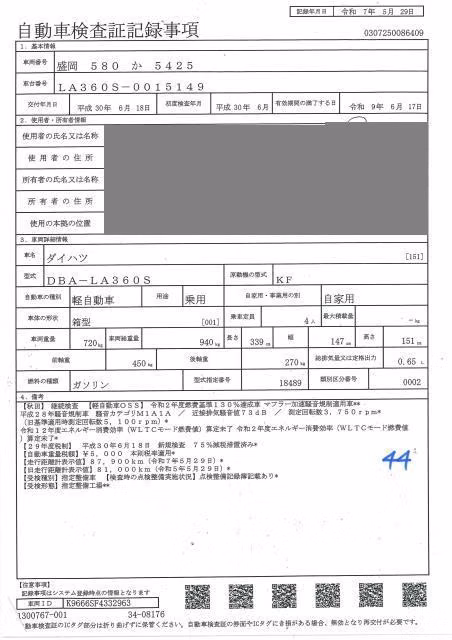 記録年月日 令和 7年 5月 29日
自動車検査証記録事項
0307250086409
1. 基本情報
車両番号 盛岡 580 か 5425
車台番号 LA360S-0015149
交付年月日 平成 30年 6月 18日 初度検査年月 平成 30年 6月 有効期間の満了する日 令和 9年 6月 17日
2. 使用者・所有者情報
使用者の氏名又は名称
使用者の住所
所有者の氏名又は名称
所有者の住所
使用の本拠の位置
3. 車両詳細情報
車名 ダイハツ [151]
型式 DBA-LA360S 原動機の型式 KF
自動車の種別 軽自動車 用途 乗用 自家用・事業用の別 自家用
車体の形状 箱型 [001] 乗車定員 4人 最大積載量 -kg
車両重量 720kg 車両総重量 940kg 長さ 339cm 幅 147cm 高さ 151cm
前軸重 450kg 後軸重 270kg 総排気量又は定格出力 0.65 L
燃料の種類 ガソリン 型式指定番号 18489 類別区分番号 0002
4. 備考
【秋田】 継続検査 【軽自動車OSS】 令和2年度燃費基準130%達成車 マフラー加速騒音規制適用車**
平成28年騒音規制車 騒音カテゴリM1A1A / 近接排気騒音値73dB / 測定回転数3,750rpm*
(旧基準適用時測定回転数5,100rpm)*
令和12年度エネルギー消費効率(WLTCモード燃費値)算定未了 令和2年度エネルギー消費効率(WLTCモード燃費値
)算定未了*
【29年度税制】 平成30年6月18日 新規検査 75%減税帰還済み*
【自動車重量税額】¥5,000 本則税率適用*
【走行距離計表示値】87,900km(令和7年5月29日)*
【旧走行距離計表示値】81,000km(令和5年5月29日)*
【受検種別】指定整備車 【検査時の点検整備実施状況】点検整備記録簿記載あり*
【受検形態】指定整備工場**
44
【注意事項】
記録事項はシステム登録時点の情報となります
車両ID K9666SF4332963
1300767-001 34-08176
自動車検査証のICタグ部分は折り曲げずに保管ください。自動車検査証の券面やICタグにき損がある場合、無効となり再交付が必要です。